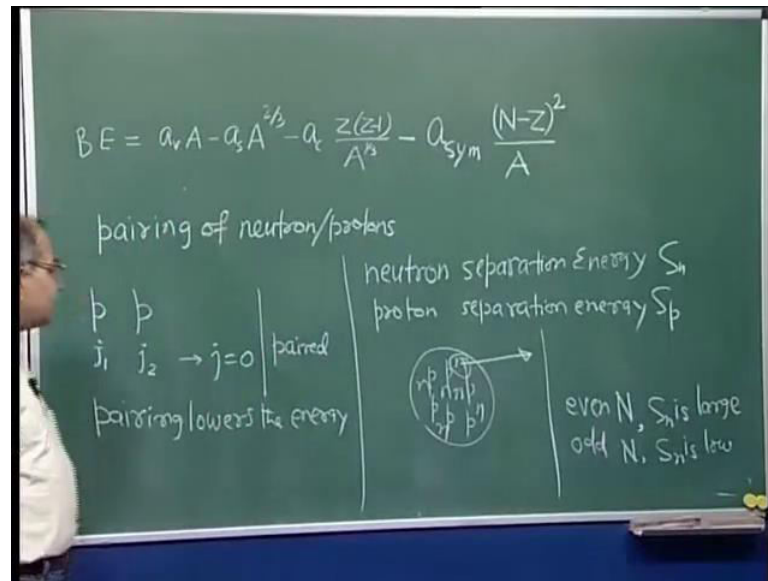 BE = aᵥA - aₛA^2/3 - a꜀ Z(Z-1)/A^1/3 - a_sym (N-Z)²/A
pairing of neutron/protons
p p
j₁ j₂ → j=0 | paired
pairing lowers the energy
neutron separation Energy Sₙ
proton separation energy Sₚ
n p p n n p p p n n p
even N, Sₙ is large
odd N, Sₙ is low